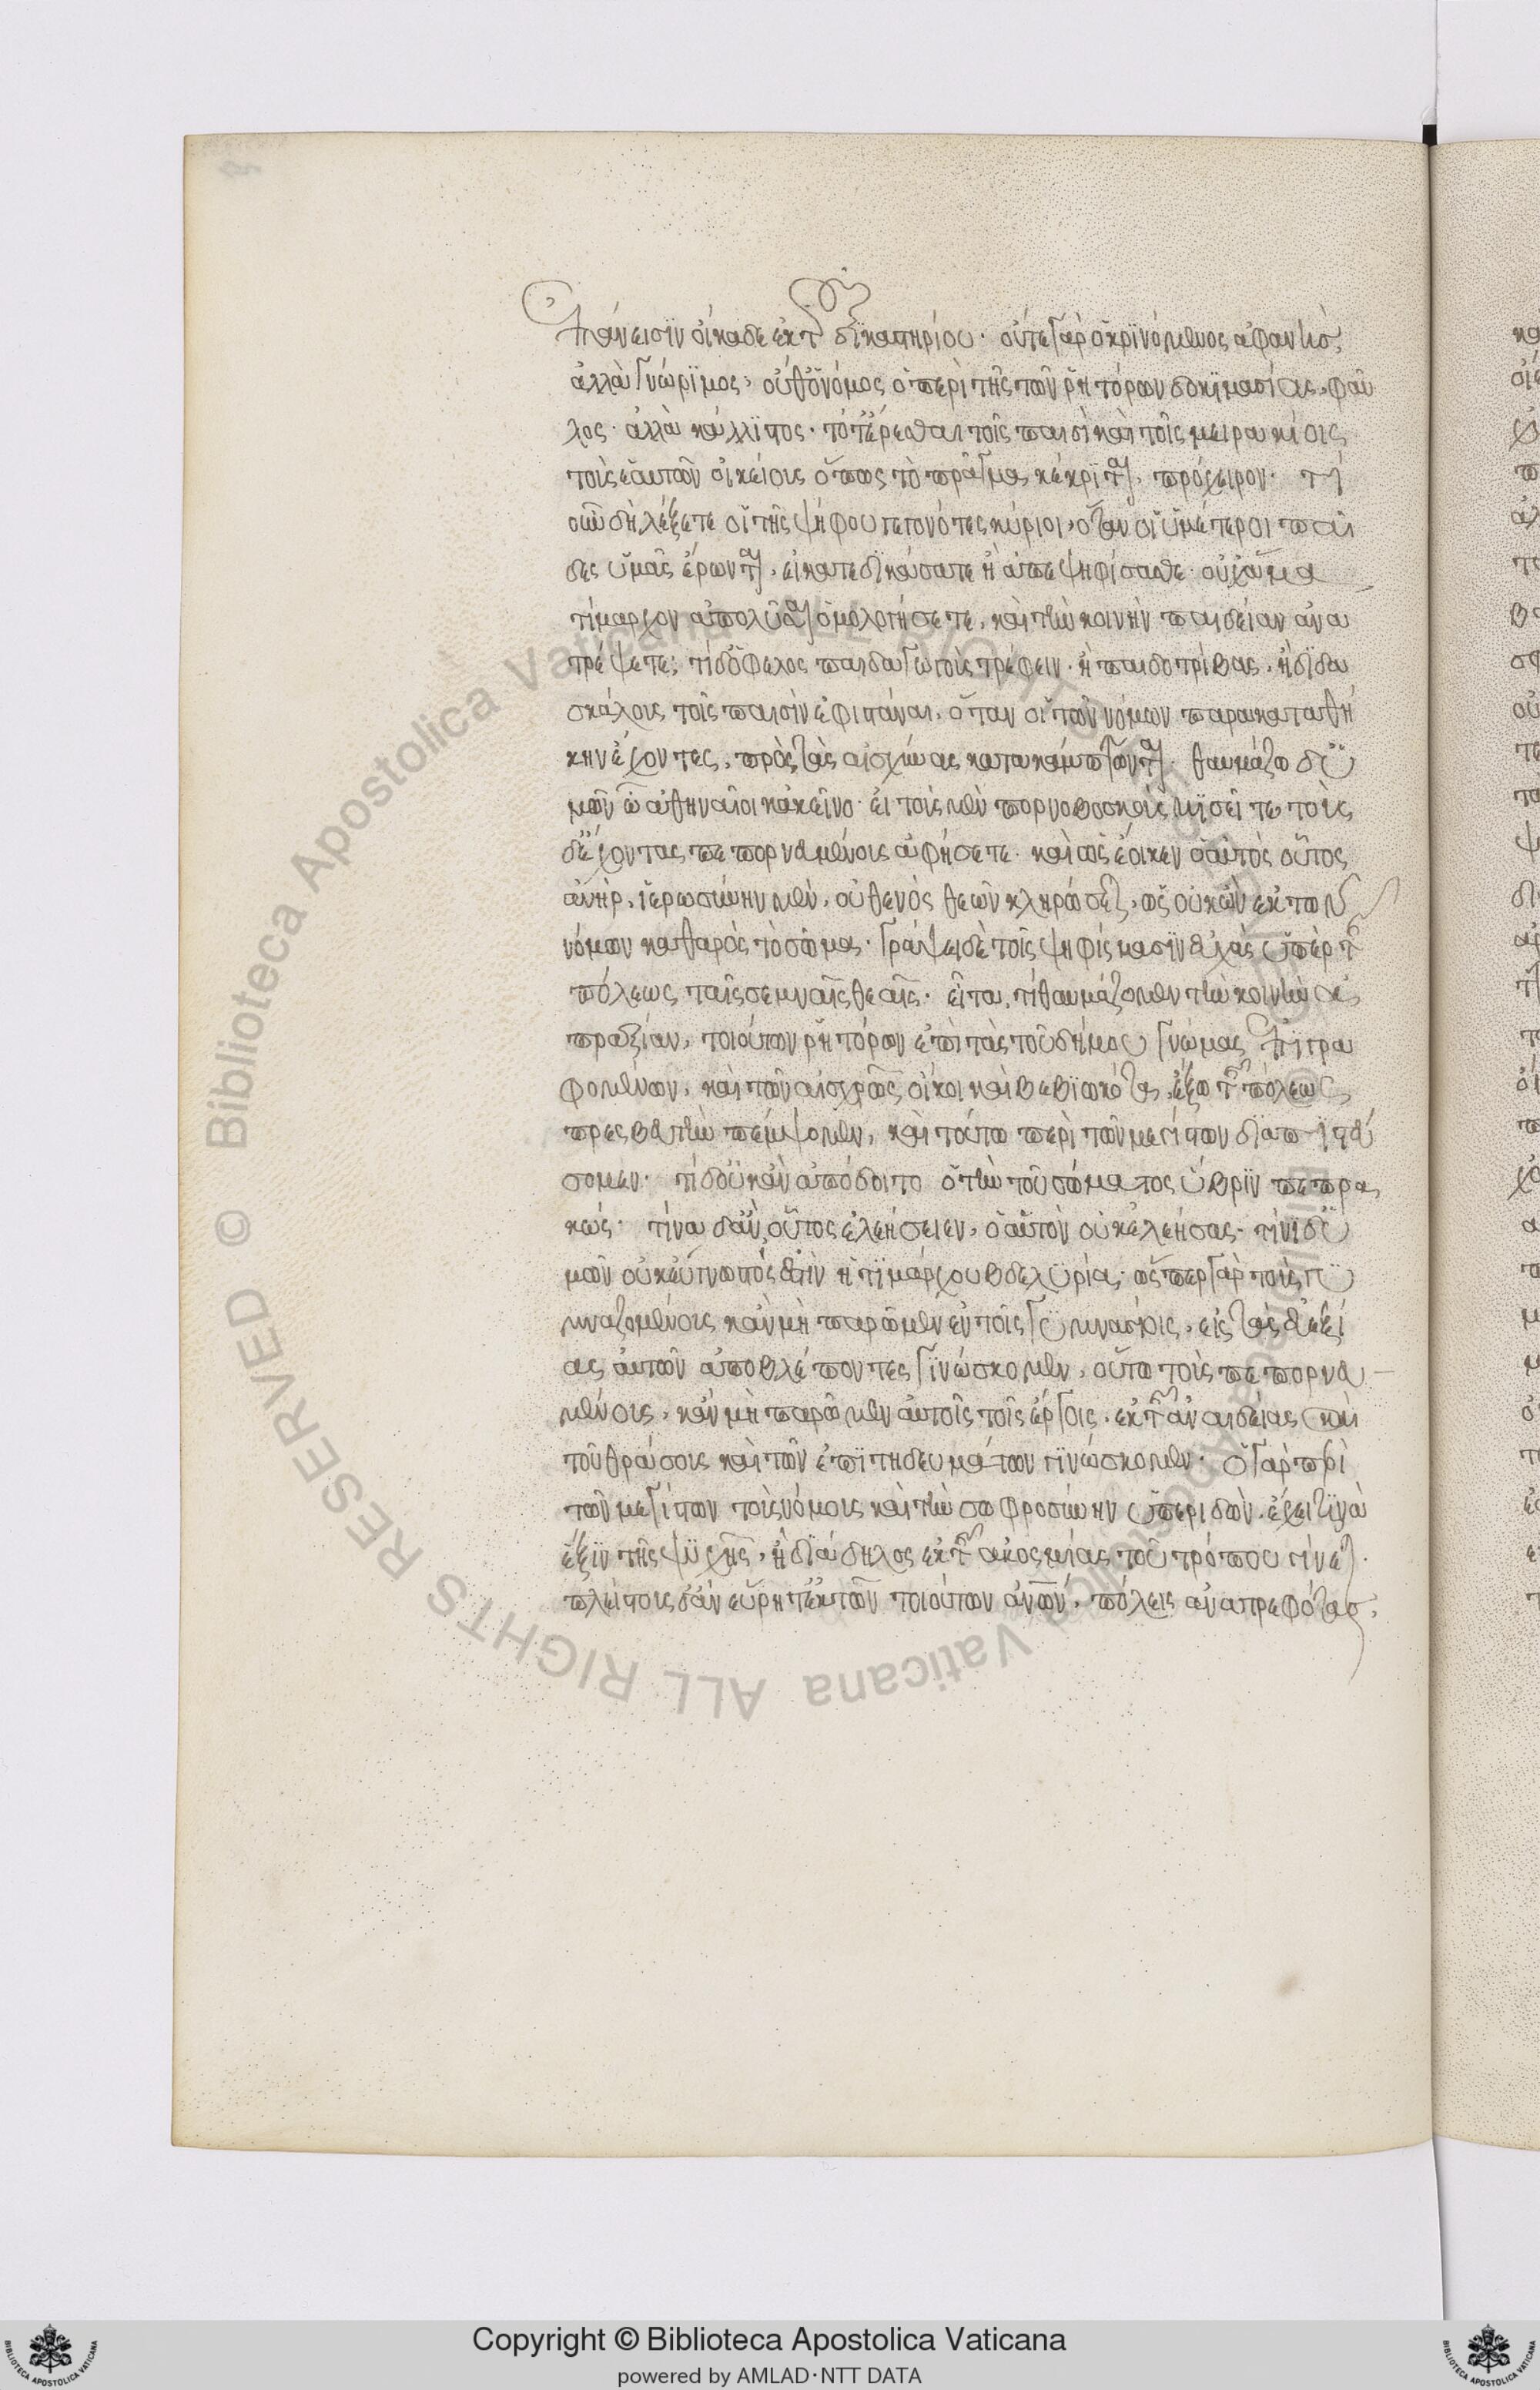 ἐπάνεισιν οἴκαδε ἐκ τοῦ δικαστηρίου· οὔτε γὰρ ὁ κρινόμενος ἀφανὴς,
ἀλλὰ γνώριμος, οὔθ' ὁ νόμος ὁ περὶ τῆς τῶν ῥητόρων δοκιμασίας, φαῦ
λος· ἀλλὰ κάλλιστος· τό τ' ἐρέσθαι τοῖς παισὶ καὶ τοῖς μειρακίοις
τοὺς ἑαυτῶν οἰκείους ὅπως τὸ πρᾶγμα κέκριται, πρόχειρον· τί
οὖν δὴ λέξετε οἱ τῆς ψήφου γεγονότες κύριοι, ὅταν οἱ ὑμέτεροι παῖ
δες ὑμᾶς ἔρωνται, εἰ κατεδικάσατε ἢ ἀπεψηφίσασθε· οὐχ ἅμα
τίμαρχον ἀπολῦσαι ὁμολογήσετε, καὶ τὴν κοινὴν παιδείαν ἀνα
τρέψετε; τί δ' ὄφελος παιδαγωγοὺς τρέφειν· ἢ παιδοτρίβας, ἢ διδα
σκάλους τοῖς παισὶν ἐφιστάναι, ὅταν οἱ τῶν νόμων παρακαταθή
κην ἔχοντες, πρὸς τὰς αἰσχύνας κατακάμπτωνται· θαυμάζω δ' ὑ
μῶν ὦ ἀθηναῖοι κἀκεῖνο· εἰ τοὺς μὲν πορνοβοσκοὺς μισεῖτε τοὺς
δ' ἑκόντας πεπορνευμένους ἀφήσετε· καὶ ὡς ἔοικεν ὁ αὐτὸς οὗτος
ἀνὴρ, ἱερωσύνην μὲν, οὐθενὸς θεῶν κληρώσεται, ὡς οὐκ ὢν ἐκ τῶν
νόμων καθαρὸς τὸ σῶμα· γράψει δὲ τοῖς ψηφίσμασιν εὐχὰς ὑπὲρ τῆς
πόλεως ταῖς σεμναῖς θεαῖς· εἶτα, τί θαυμάζομεν τὴν κοινὴν ἀ
πραξίαν, τοιούτων ῥητόρων ἐπὶ τὰς τοῦ δήμου γνώμας ἐπιγρα
φομένων, καὶ τὸν αἰσχρῶς οἴκοι καὶ βεβιωκότα, ἔξω τῆς πόλεως
πρεσβευτὴν πέμψομεν, καὶ τούτω περὶ τῶν μεγίστων διαπιστεύ
σομεν· τί δ' οὐκ ἂν ἀπόδοιτο ὁ τὴν τοῦ σώματος ὕβριν πεπρα
κώς· τίνα δ' ἂν οὗτος ἐλεήσειεν, ὁ αὑτὸν οὐκ ἐλεήσας· τίνι δ' ὑ
μῶν οὐκ εὔγνωστός ἐστὶν ἡ τιμάρχου βδελυρία, ὥσπερ γὰρ τοὺς γυ
μναζομένους κἂν μὴ παρῶμεν ἐν τοῖς γυμνασίοις, εἰς τὰς εὐεξί
ας αὐτῶν ἀποβλέποντες γινώσκομεν, οὕτω τοὺς πεπορνευ
μένους, κἂν μὴ παρῶμεν αὐτοῖς τοῖς ἔργοις, ἐκ τῆς ἀναιδείας καὶ
τοῦ θράσους καὶ τῶν ἐπιτηδευμάτων γινώσκομεν· ὁ γὰρ περὶ
τῶν μεγίστων τοὺς νόμους καὶ τὴν σωφροσύνην ὑπεριδὼν, ἔχει τινὰ
ἕξιν τῆς ψυχῆς, ἣ διάδηλος ἐκ τῆς ἀκοσμίας τοῦ τρόπου γίνεται·
πλείστους δ' ἂν εὕρητ' ἐκ τῶν τοιούτων ἀνθρώπων, πόλεις ἀνατρεφότας,